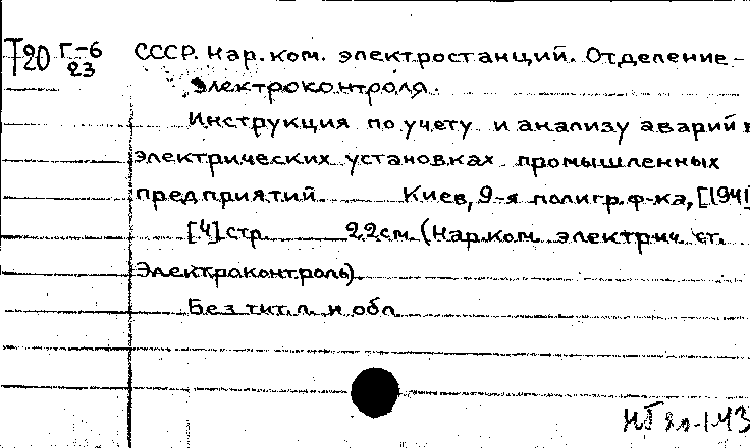 Т20 Г-6
23
СССР. Нар. ком. электростанций. Отделение
электроконтроля.
Инструкция по учету и анализу аварий в
электрических установках промышленных
предприятий. Киев, 9-я полигр. ф-ка, [1941]
[4] стр. 22см. (Нар. ком. электрич. ст.
Электроконтроль).
Без тит. л. и обл.